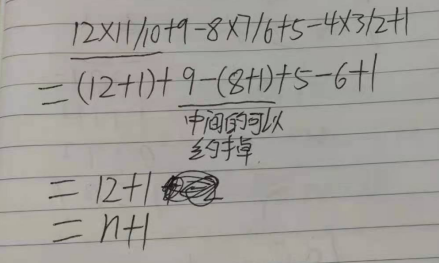 12×11/10+9-8×7/6+5-4×3/2+1
=(12+1)+9-(8+1)+5-6+1
中间的可以
约掉
=12+1
=n+1